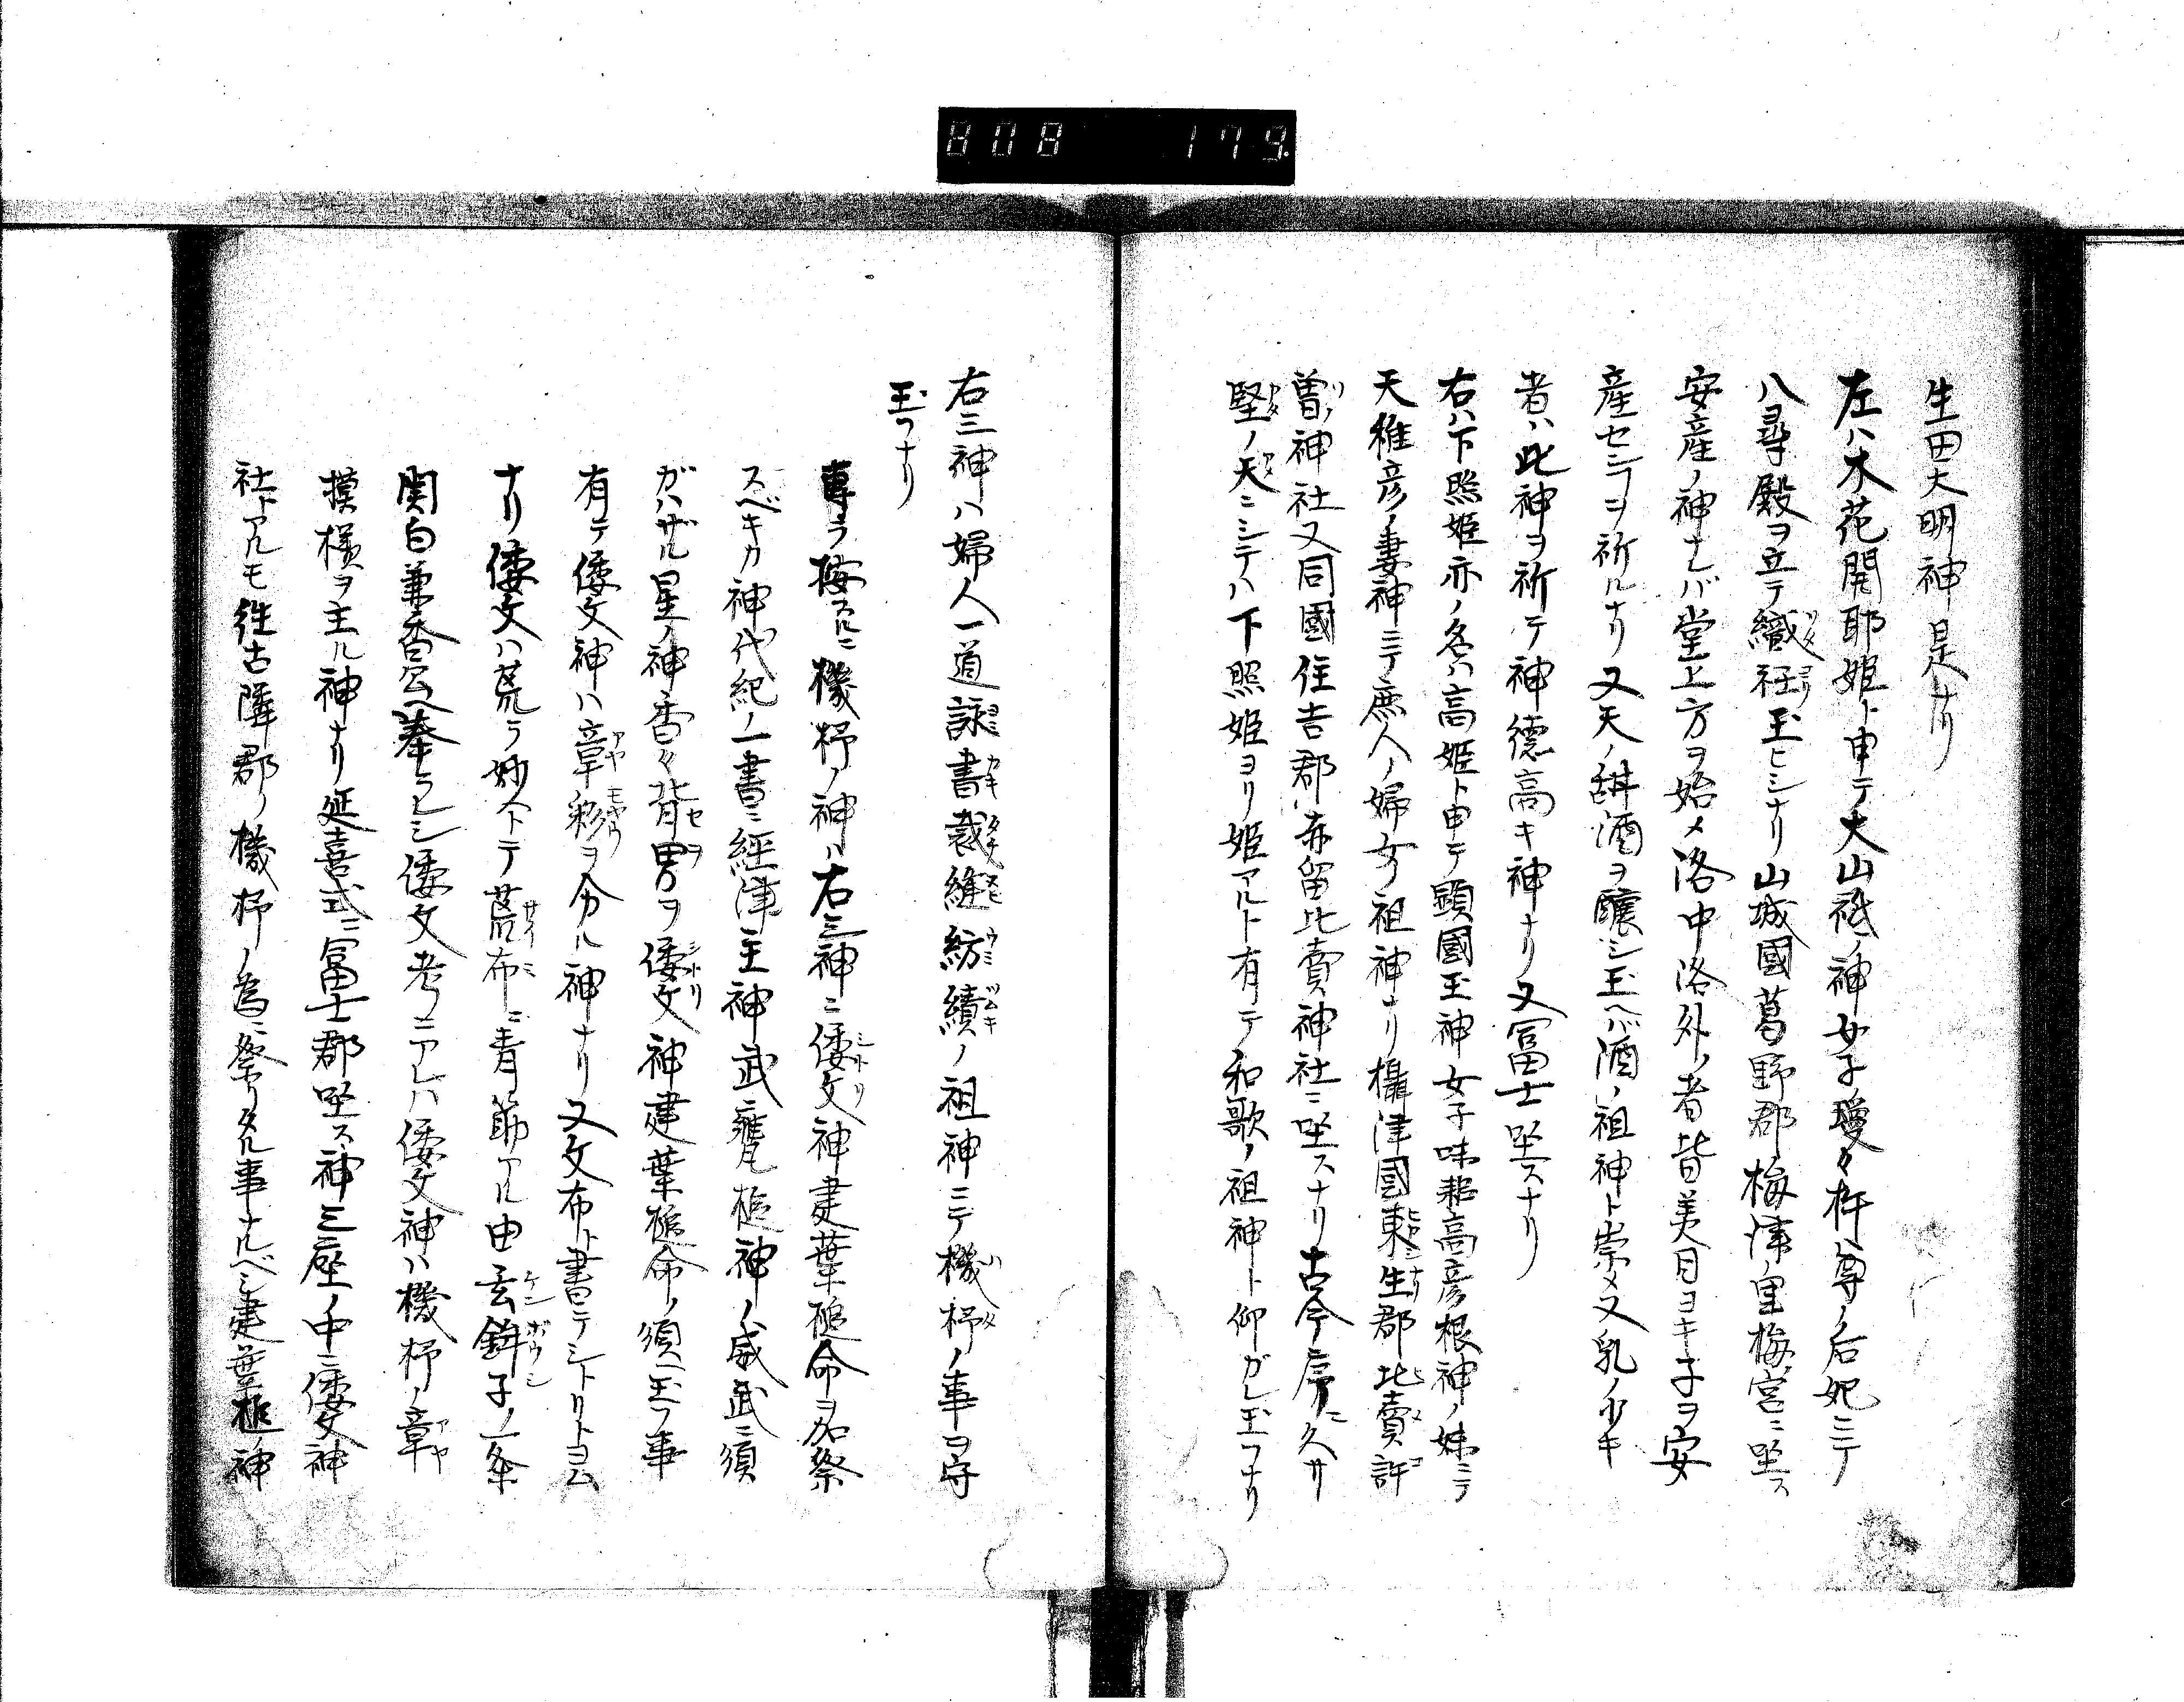 808 179
生田大明神是ナリ
左ハ木花開耶姫ト申テ大山祇ノ神女子瓊々杵尊ノ后妃ニテ
八尋殿ヲ立テ織 玉ヒシナリ山城國葛野郡梅津里梅宮ニ坐ス
安産ノ神ナレバ堂上方ヲ始メ洛中洛外ノ者皆美目ヨキ子ヲ安
産セシヿヲ祈ルナリ又天ノ甜酒ヲ釀シ玉ヘバ酒ノ祖神ト崇メ又乳ノ少キ
者ハ此神ヲ祈テ神德高キ神ナリ又冨士坐スナリ
右ハ下照姫亦ノ名ハ高姫ト申テ顕國玉神女子味耜高彦根神ノ妹ニテ
天稚彦ノ妻神ニテ庶人ノ婦女祖神ナリ攝津國東生郡比賣許
曽神社又同國住吉郡赤留比賣神社ニ坐スナリ古今序ニ久サ
堅ノ天ニシテハ下照姫ヨリ姫アルト有テ和歌ノ祖神ト仰ガレ玉フナリ
右三神ハ婦人一道詠書裁縫紡績ノ祖神ニテ機杼ノ事ヲ守
玉フナリ
専ラ按スルニ機杼ノ神ハ右三神ニ倭文神建葉槌命ヲ加祭
スベキカ神代紀ノ一書ニ經津主神武甕槌神ノ威武ニ須
ガハザル星ノ神香々背男ヲ倭文神建葉槌命ノ須ヘ玉フ事
有テ倭文神ハ章彩ヲ分ル神ナリ又文布ト書テシトリトヨム
ナリ倭文ハ荒ラ妙トテ荒布ニ青筋アル由玄鉾子ノ一条
関白兼香公ヘ奉ラレシ倭文考ニアレハ倭文神ハ機杼ノ章
摸様ヲ主ル神ナリ延喜式ニ冨士郡坐ス神三座ノ中ニ倭文神
社トアルモ往古隣郡ノ機杼ノ為ニ祭リタル事ナルベシ建葉槌ノ神